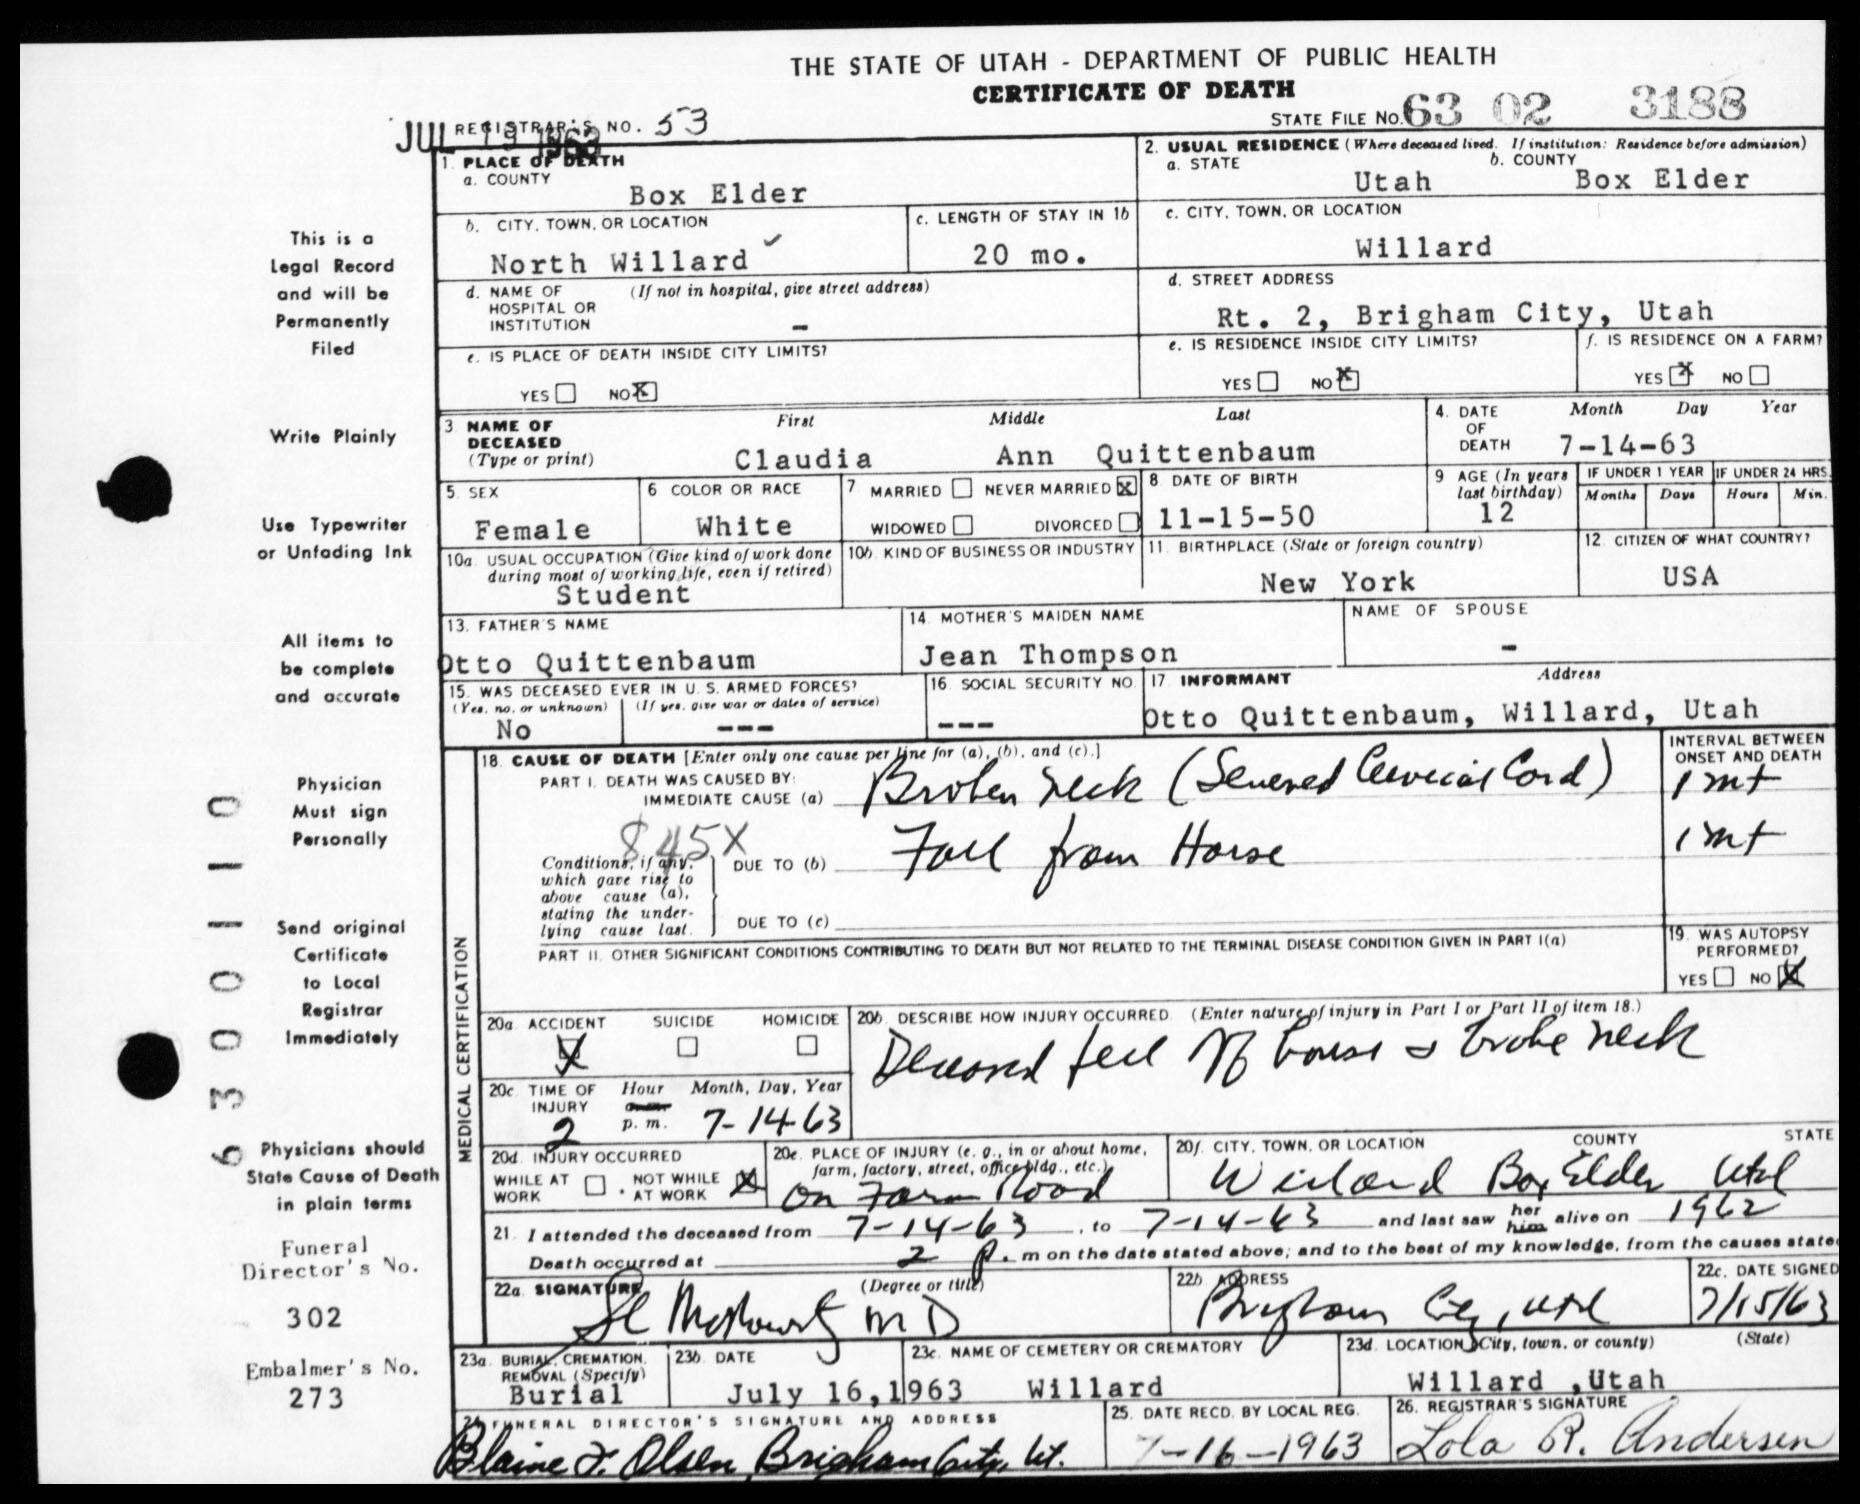 THE STATE OF UTAH - DEPARTMENT OF PUBLIC HEALTH
CERTIFICATE OF DEATH
STATE FILE NO. 63 02 3188
JUL 19 1963
REGISTRAR'S NO. 53
1. PLACE OF DEATH
a. COUNTY
Box Elder
2. USUAL RESIDENCE (Where deceased lived. If institution: Residence before admission)
a. STATE Utah
b. COUNTY Box Elder
b. CITY, TOWN, OR LOCATION
North Willard
c. LENGTH OF STAY IN 1b
20 mo.
c. CITY, TOWN, OR LOCATION
Willard
d. NAME OF HOSPITAL OR INSTITUTION (If not in hospital, give street address)
-
d. STREET ADDRESS
Rt. 2, Brigham City, Utah
e. IS PLACE OF DEATH INSIDE CITY LIMITS?
YES NO X
e. IS RESIDENCE INSIDE CITY LIMITS?
YES NO X
f. IS RESIDENCE ON A FARM?
YES X NO
3 NAME OF DECEASED (Type or print)
First Middle Last
Claudia Ann Quittenbaum
4. DATE OF DEATH
Month Day Year
7-14-63
5. SEX
Female
6 COLOR OR RACE
White
7 MARRIED NEVER MARRIED X
WIDOWED DIVORCED
8 DATE OF BIRTH
11-15-50
9 AGE (In years last birthday)
12
IF UNDER 1 YEAR
Months Days
IF UNDER 24 HRS.
Hours Min.
10a. USUAL OCCUPATION (Give kind of work done during most of working life, even if retired)
Student
10b. KIND OF BUSINESS OR INDUSTRY
11. BIRTHPLACE (State or foreign country)
New York
12. CITIZEN OF WHAT COUNTRY?
USA
13. FATHER'S NAME
Otto Quittenbaum
14. MOTHER'S MAIDEN NAME
Jean Thompson
NAME OF SPOUSE
-
15. WAS DECEASED EVER IN U. S. ARMED FORCES?
(Yes, no, or unknown) (If yes, give war or dates of service)
No ---
16. SOCIAL SECURITY NO.
---
17 INFORMANT Address
Otto Quittenbaum, Willard, Utah
MEDICAL CERTIFICATION
18. CAUSE OF DEATH [Enter only one cause per line for (a), (b), and (c).]
INTERVAL BETWEEN ONSET AND DEATH
PART I. DEATH WAS CAUSED BY:
IMMEDIATE CAUSE (a) Broken neck (Severed Cervical Cord) 1 mt
845X
Conditions, if any, which gave rise to above cause (a), stating the underlying cause last.
DUE TO (b) Fall from Horse 1 mt
DUE TO (c)
PART II. OTHER SIGNIFICANT CONDITIONS CONTRIBUTING TO DEATH BUT NOT RELATED TO THE TERMINAL DISEASE CONDITION GIVEN IN PART I(a)
19. WAS AUTOPSY PERFORMED?
YES NO X
20a. ACCIDENT SUICIDE HOMICIDE
X
20b. DESCRIBE HOW INJURY OCCURRED. (Enter nature of injury in Part I or Part II of item 18.)
Deceased fell off horse & broke neck
20c. TIME OF INJURY
Hour Month, Day, Year
2 p. m. 7-14-63
20d. INJURY OCCURRED
WHILE AT WORK NOT WHILE AT WORK X
20e. PLACE OF INJURY (e. g., in or about home, farm, factory, street, office bldg., etc.)
On Farm Road
20f. CITY, TOWN, OR LOCATION COUNTY STATE
Willard Box Elder Utah
21. I attended the deceased from 7-14-63, to 7-14-63 and last saw her him alive on 1962
Death occurred at 2 p. m on the date stated above; and to the best of my knowledge, from the causes state
22a. SIGNATURE (Degree or title)
M D
22b. ADDRESS
Brigham City, Utah
22c. DATE SIGNED
7/15/63
23a. BURIAL, CREMATION, REMOVAL (Specify)
Burial
23b. DATE
July 16, 1963
23c. NAME OF CEMETERY OR CREMATORY
Willard
23d. LOCATION (City, town, or county) (State)
Willard ,Utah
24. FUNERAL DIRECTOR'S SIGNATURE AND ADDRESS
Blaine F. Olsen, Brigham City, Ut.
25. DATE RECD. BY LOCAL REG.
7-16-1963
26. REGISTRAR'S SIGNATURE
Lola R. Andersen
This is a
Legal Record
and will be
Permanently
Filed
Write Plainly
Use Typewriter
or Unfading Ink
All items to
be complete
and accurate
Physician
Must sign
Personally
Send original
Certificate
to Local
Registrar
Immediately
Physicians should
State Cause of Death
in plain terms
Funeral
Director's No.
302
Embalmer's No.
273
6 3 0 0 1 1 0